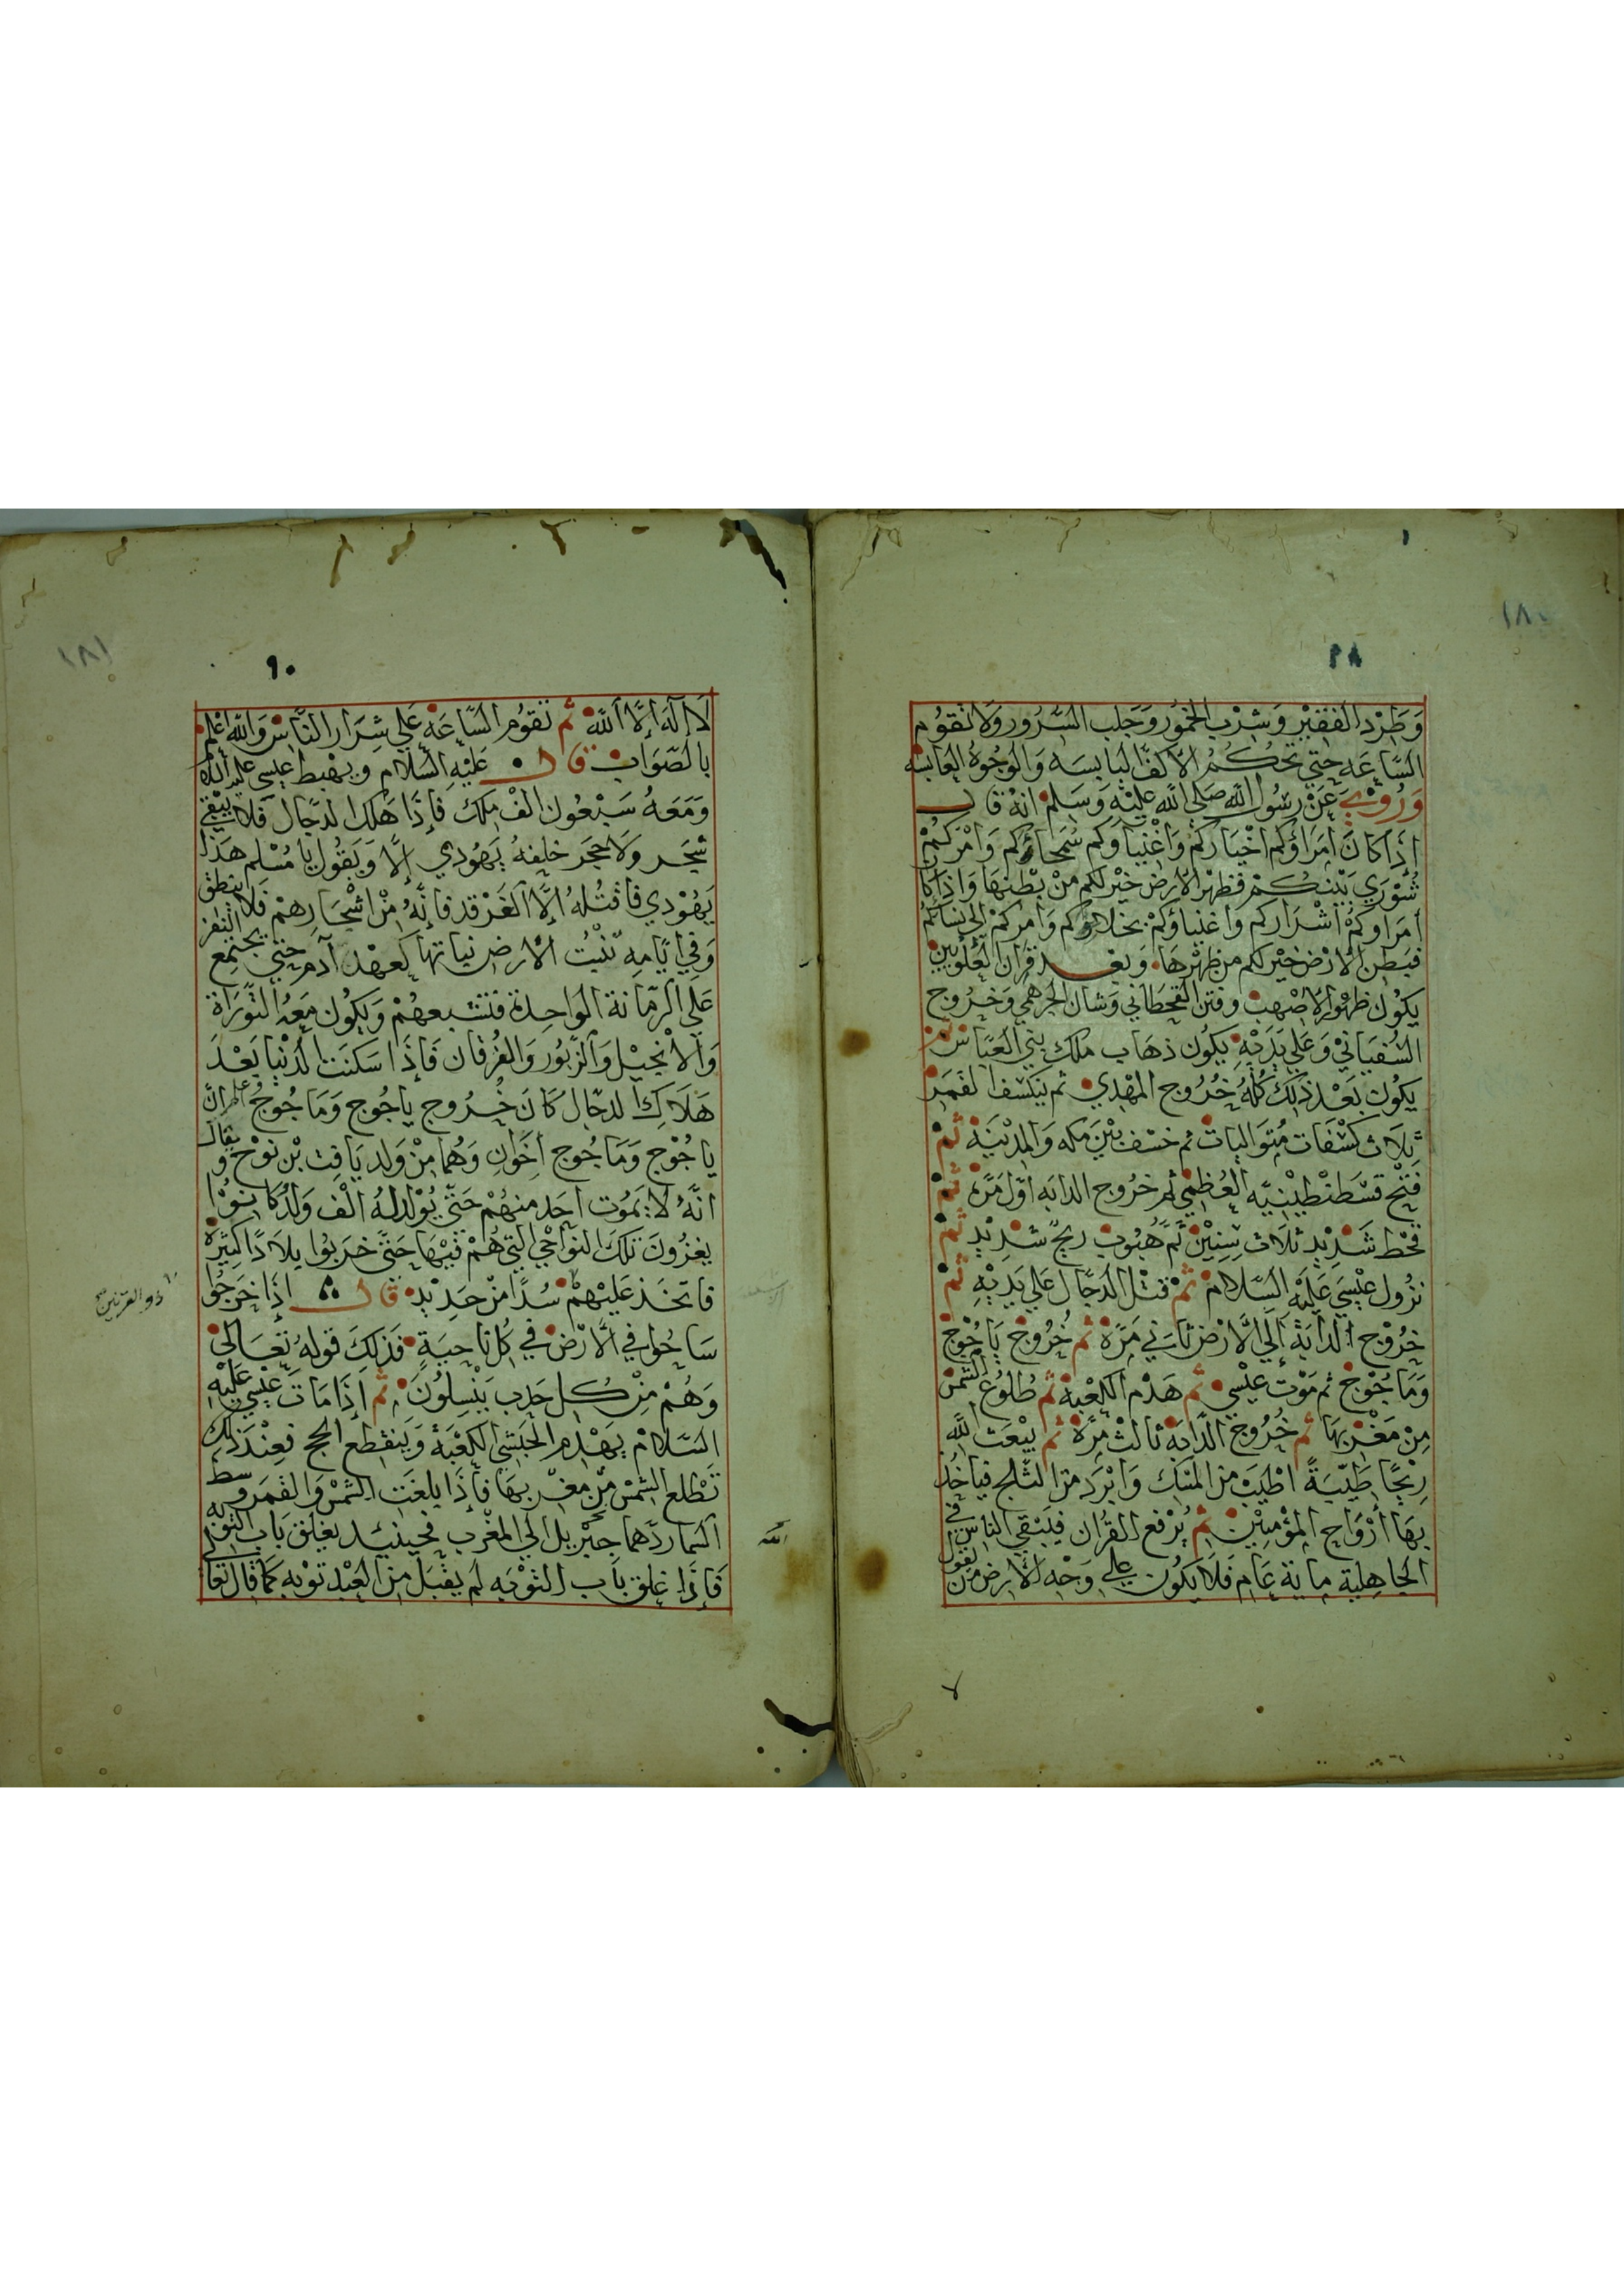 ١٨٠
٢٨
وَطَرْد الفَقيْر وَشِرْب الخمُور وَجَلب السُّرُور وَلا تقوُم
السَّاعَة حَتي تحكُمُ الأكفّ اليَابسَه وَالوُجُوهُ العَابسَه
وَرُوْيَ عَنْ رسُول الله صَلي الله عليْه وَسَلم انهُ قال
إذَا كانَ أمَرَاؤكم اخيَاركُم وَاغْنياوكم سُمَحاؤكم وَامْركُمْ
شُوْرَي بَيْنكُمْ فظهْر الارض خيْر لكم منْ بَطنهَا وَاذا كا
أمَراوكمْ اشرَاركم وَاغنياؤكمْ بخلاؤكم وَامركمْ إلي نسَائكم
فبَطن الأرْض خيْر لكم من ظهْرهَا وَبعْد قرَان العُلويين
يكُوْن ظهوْر الاصْهب وفتن القحطَاني وَشان الجرهمي وَخرُوج
السُّفيَاني وَعَلي يَدَيْه يكون ذهَاب ملك بني العَبَّاس ثم
يكون بَعْد ذَلك كُلهُ خُرُوج المهْدي ثم ينكسف القمَر
ثلاث كسْفات مُتوَاليات ثم خسْف بيْنَ مكه وَالمديْنَة ثمْ
فَتْح قسْطَنْطيْنيّه العُظمي ثم خرُوج الدابه أوّل مَرّة ثمْ
قحْط شَديْد ثلاث سنيْن ثمّ هبُوب ريح شديْد ثمْ
نزُول عيْسَي عَليْه السَّلامْ ثمْ قتْل الدجّال عَلي يَديْه ثمْ
خرُوْج الدابَة إلَي الأرْض ثاني مَرَّة ثمْ خُرُوْج يَاجُوْج
وَمَاجُوْج ثم مَوْت عيْسي ثم هَدْم الكعْبَة ثم طُلوُع الشمْس
منْ مَغْربهَا ثم خُرُوج الدّابَة ثالث مرّة ثم يبْعَث اللَّه
ريْحًا طَيّبَةً اطْيَب من المسْك وَابْرَد من الثلج فيَاخُذ
بهَا أرْوَاح المؤمنيْن ثم يُرْفع القُرْان فيَبْقي الناس في
الجاهلية ماية عَام فَلَا يكُون علي وَجْه الأرض من يقول
لا
١٨١
٩٠
لَا إلَه إلَّا اللَّه ثم تقوُم السَّاعَة عَلي شرَار النَّاس وَالله اعْلم
بالصَّوَاب قال عَليْه السَّلام ويهْبط عيسي عليه السلام
وَمَعَهُ سَبْعُون الفْ ملك فإذَا هَلك الدجّال فَلا يبْقي
شجَر وَلا حجَر خلفهُ يَهُودي إلَّا وَيَقُول يَا مُسْلم هَذا
يَهُوْدي فاقتُلهُ إلَّا الغَرْقد فانَّهُ منْ اشْجَارهمْ فَلا ينطق
وَفي ايَّامه تنْبُت الأرض نباتها كعهْد آدم حَتي يجْتمع النفر
عَلَي الرمّانة الوَاحدَة فتشبعهُمْ وَيكُوْن مَعَهُ التَّوْرَاة
وَالانجيْل وَالزَّبُور وَالفُرْقان فَإذَا سَكَنَت الدنْيا بَعْد
هَلاك الدجّال كَانَ خُرُوج يَاجُوج وَمَاجُوج اعلم انَّ
يَاجُوْج وَمَاجُوج اخَوَان وَهُمَا منْ وَلد يَافث بْن نوْح وَيقال
انَّهُ لا يَمُوت احَد منهُمْ حَتَّي يُوْلد لهُ الْف وَلَد كانوُا
يغزُونَ تلكَ النوَاحي التي هُمْ فيْهَا حَتَّي خرَبوا بلادًا كثيْرَة
فاتخَذ عَليْهمْ سُدًا منْ حَديْد قال اذَا خرَجُوا
ذو القرنين صح
سَاحُوا في الأرْض في كُل ناحيَة فَذلكَ قولهُ تَعَالي
وَهُمْ منْ كُل حَدب يَنْسلُونَ ثم إذَا مَاتَ عيْسي عَليْه
السَّلامْ يهْدم الحَبَشي الكعْبَة وَينقَطع الحج فعنْدَ ذلك
تَطْلع الشمْس منْ مغْربهَا فإذَا بلغَت الشمْس وَالقمَر وسط
السما ردّهما جبْريل الي المغْرب فحينيذ يغلق بَاب التوْبه
فَإذَا غلق بَاب التوْبَه لم يقبَل من العَبْد توْبه كمَا قال تعالي